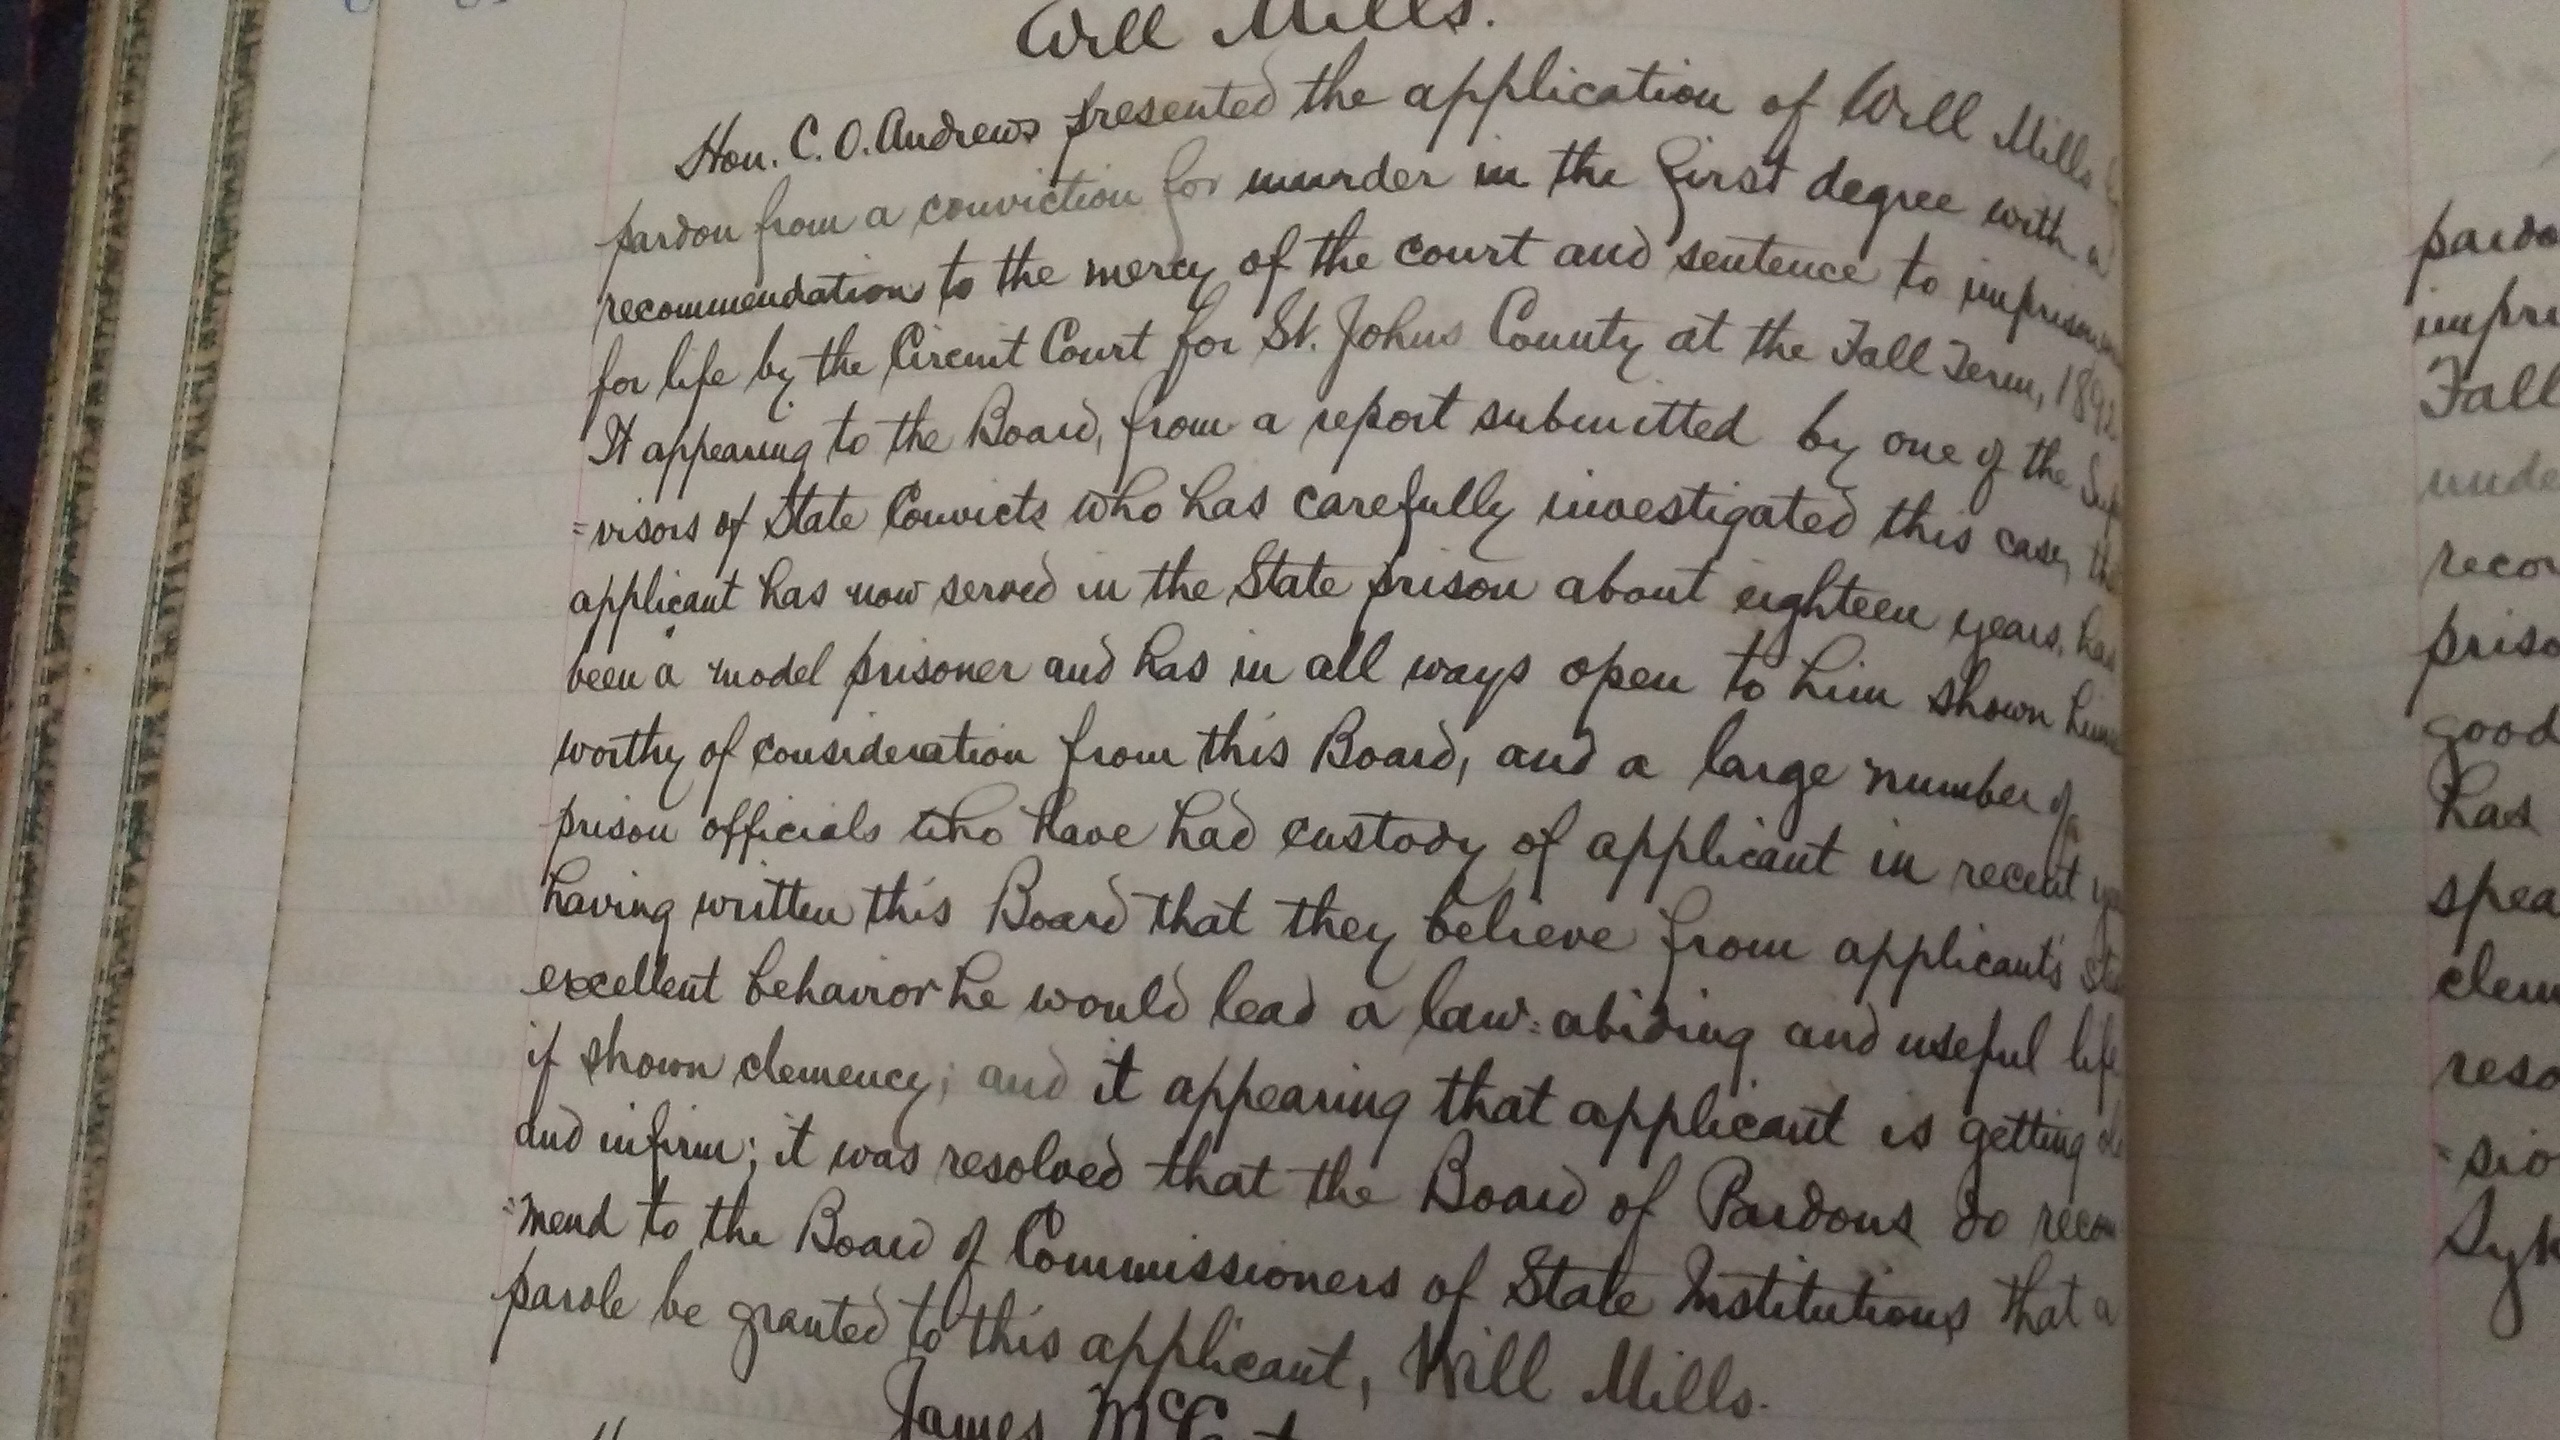 Will Mills.
Hon. C. O. Andrews presented the application of Will Mills
pardon from a conviction for murder in the first degree with a
recommendation to the mercy of the court and sentence to imprison
for life by the Circuit Court for St. Johns County at the Fall Term, 189
It appearing to the Board, from a report submitted by one of the Su
=visors of State Convicts who has carefully investigated this case, th
applicant has now served in the State prison about eighteen years, has
been a model prisoner and has in all ways open to him shown him
worthy of consideration from this Board, and a large number of
prison officials who have had custody of applicant in recent y
having written this Board that they believe from applicant's
excellent behavior he would lead a law-abiding and useful life
if shown clemency; and it appearing that applicant is getting o
and infirm; it was resolved that the Board of Pardons do recom
"mend to the Board of Commissioners of State Institutions that a
parole be granted to this applicant, Will Mills.
James
pardo
impri
Fall
unde
recor
priso
good
has
spea
clem
reso
=sio